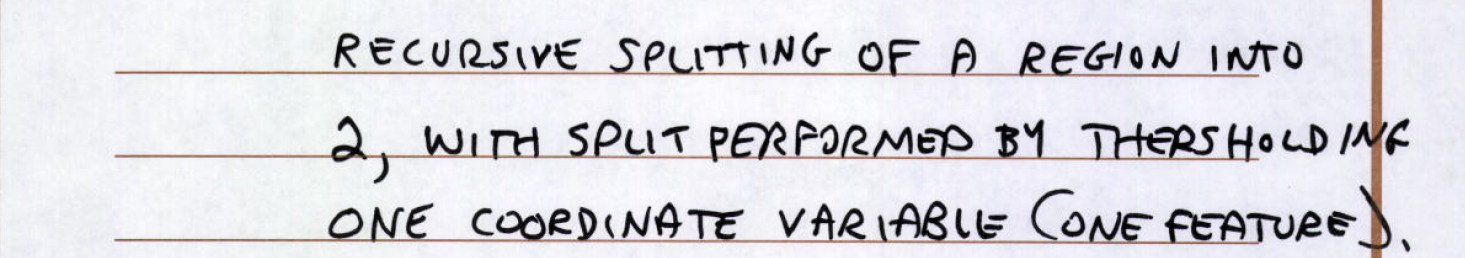 RECURSIVE SPLITTING OF A REGION INTO
2, WITH SPLIT PERFORMED BY THERSHOLDING
ONE COORDINATE VARIABLE (ONE FEATURE).